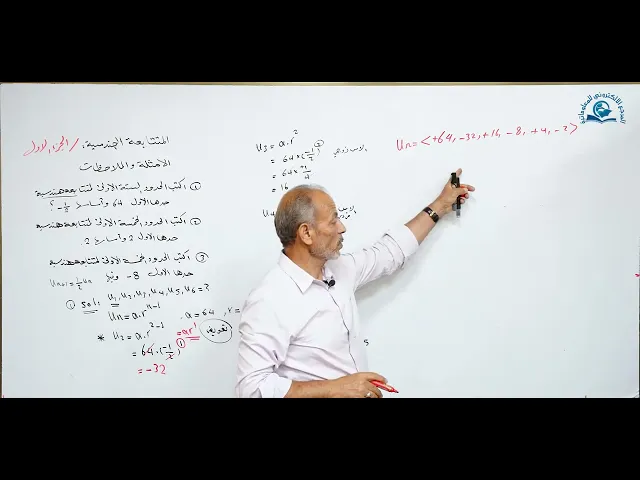 المتتابعة الهندسية: / الجزء الاول
الامثلة والملاحظات
① اكتب الحدود الستة الاولى لمتتابعة هندسية
حدها الاول 64 وأساسها -1/2 ؟
② اكتب الحدود الخمسة الاولى لمتتابعة هندسية
حدها الاول 2 وأساسها 2
③ اكتب الحدود الخمسة الاولى لمتتابعة هندسية
حدها الاول 8- وفيها Un+1 = 1/2 Un
① Sol: U1, U2, U3, U4, U5, U6 = ?
Un = a.r^(n-1) , a = 64 , r =
* U2 = a.r^(2-1) = ar^1 تعويض
= 64.(-1/2)^①
= -32
U3 = a.r^2
= 64×(-1/2)^②
= 64×+1/4
= 16
U4
Un = <+64, -32, +16, -8, +4, -2>